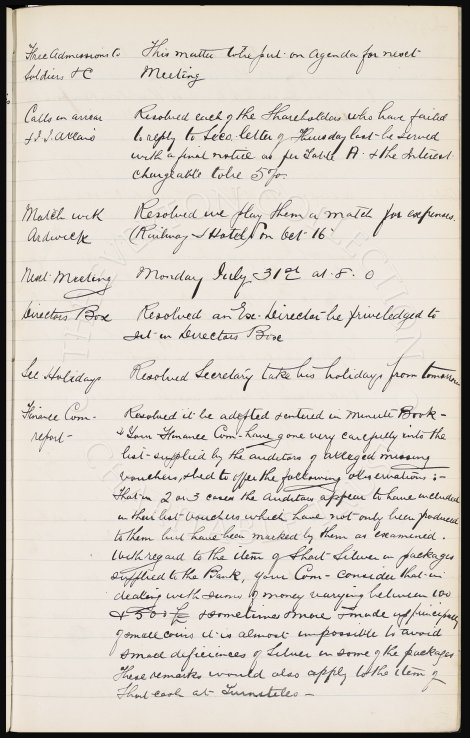 Free Admissions to This matter to be put on Agenda for next
Soldiers &C Meeting
Calls in arrear Resolved each of the Shareholders who have failed
& J. J. to reply to Secs letter of Thursday last be served
with a final notice as per Table A. & the Interest
chargeable to be 5%.
Match with Resolved we play them a match for expenses.
Ardwick (Railway & Hotel) on Oct 16
Next Meeting Monday July 31st at 8.0
Directors Box Resolved an Ex. Director be priviledged to
sit in Directors Box
Sec Holidays Resolved Secretary take his holidays from tomorrow
Finance Com- Resolved it be adopted & entered in Minute Book -
report - & Your Finance Com- have gone very carefully into the
list supplied by the auditors of alleged missing
vouchers, & beg to offer the following observations :-
That in 2 or 3 cases the Auditors appear to have included
in their list vouchers which have not only been produced
to them but have been marked by them as examined.
With regard to the item of Short Silver in packages
supplied to the Bank, your Com- consider that in
dealing with sums of money varying between 100
& 500 £ & sometimes more & made up principally
of small coins it is almost impossible to avoid
small deficiences of Silver in some of the packages
These remarks would also apply to the item of
Short cash at Turnstiles -
THE EVERTON COLLECTION